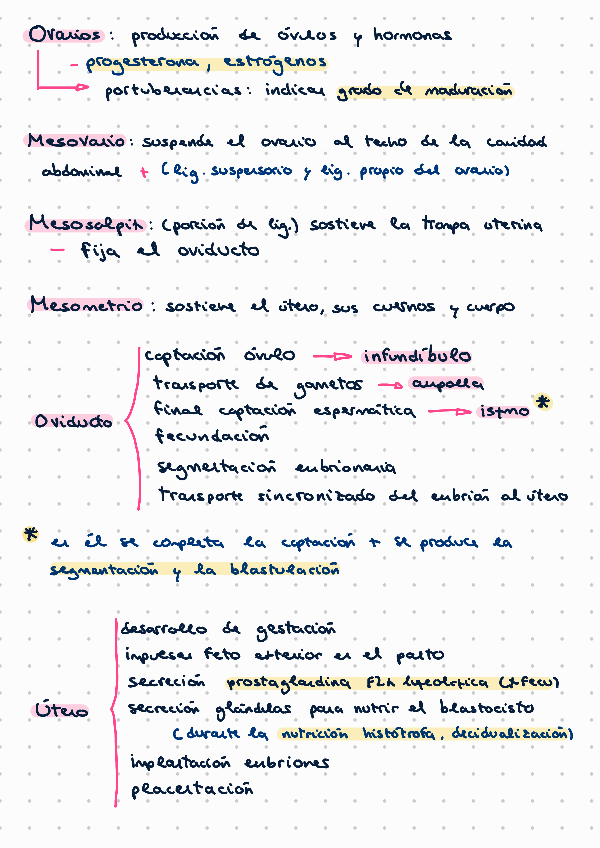 Ovarios: producción de óvulos y hormonas
- progesterona, estrógenos
portuberancias: indican grado de maduración
Mesovario: suspende el ovario al techo de la cavidad
abdominal + (lig. suspensorio y lig. propio del ovario)
Mesosalpix: (porción de lig.) sostiene la trompa uterina
- fija el oviducto
Mesometrio: sostiene el útero, sus cuernos y cuerpo
Oviducto
captación óvulo → infundíbulo
transporte de gametos → ampolla
final captación espermática → istmo *
fecundación
segmentación embrionaria
transporte sincronizado del embrión al útero
* en él se completa la captación + se produce la
segmentación y la blastulación
Útero
desarrollo de gestación
impulsar feto exterior en el parto
secreción prostaglandina F2α luteolítica
secreción glándulas para nutrir el blastocisto
(durante la nutrición histótrofa, decidualización)
implantación embriones
placentación